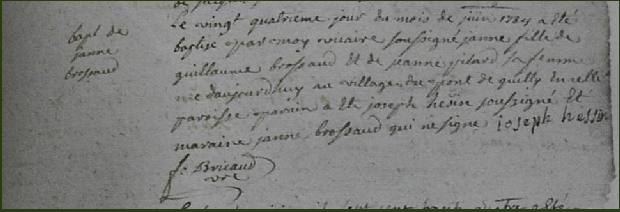 bapt de
janne
brossaud
Le vingt quatrieme jour du mois de juin 1734 a été
baptisé par moy vicaire soussigné janne fille de
guillaume brossaud et de jeanne pilard sa femme
née daujourdhuy au village du pont de quilly en cette
paroisse parain a été joseph hesin soussigné Et
maraine janne brossaud qui ne signe joseph hessin
f: Bricaud
vre